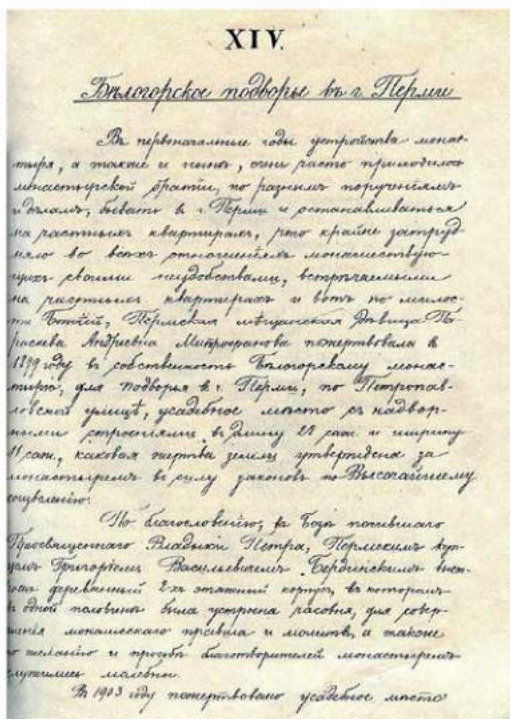 XIV.
Бѣлогорское подворье въ г. Перми
Въ первоначальные годы устройства монас-
тыря, а также и нынѣ, очень часто приходилось
монастырской братіи, по разнымъ порученіямъ
и дѣламъ, бывать въ г. Перми и останавливаться
на частныхъ квартирахъ, чего крайне затруд-
няло во всѣхъ отношеніяхъ монашествую-
щихъ своими неудобствами, встрѣчаемыми
на частныхъ квартирахъ и вотъ по милос-
ти Божіей, Пермская мѣщанская дѣвица Па-
раскева Андреевна Митрофанова пожертвовала въ
1899 году въ собственность Бѣлогорскому монас-
тырю, для подворья въ г. Перми, по Петропав-
ловской улицѣ, усадебное мѣсто съ надвор-
ными строеніями въ длину 25 саж. и ширину
11 саж., каковая жертва земли утверждена за
монастыремъ въ силу законовъ по Высочайшему
соизволенію.
По благословенію, въ Бозѣ почившаго
Преосвященнаго Владыки Петра, Пермскимъ куп-
цомъ Григоріемъ Васильевичемъ Бердинскимъ выст-
роенъ деревянный 2хъ этажный корпусъ, въ которомъ
въ одной половинѣ была устроена часовня, для совер-
шенія монашескаго правила и молитвъ, а также
по желанію и просьбѣ благотворителей монастыремъ
служились молебны.
Въ 1903 году пожертвовано усадебное мѣсто